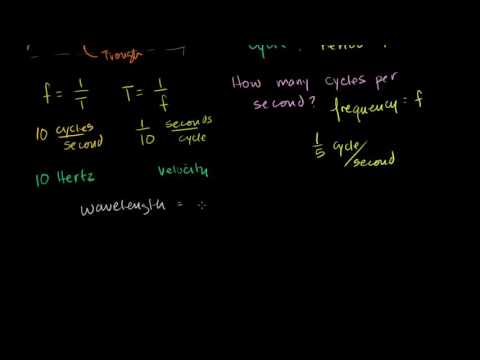 Trough
f = 1/T T = 1/f
10 cycles/second 1/10 seconds/cycle
10 Hertz velocity
wavelength =
How many cycles per
second? frequency = f
1/5 cycle/second